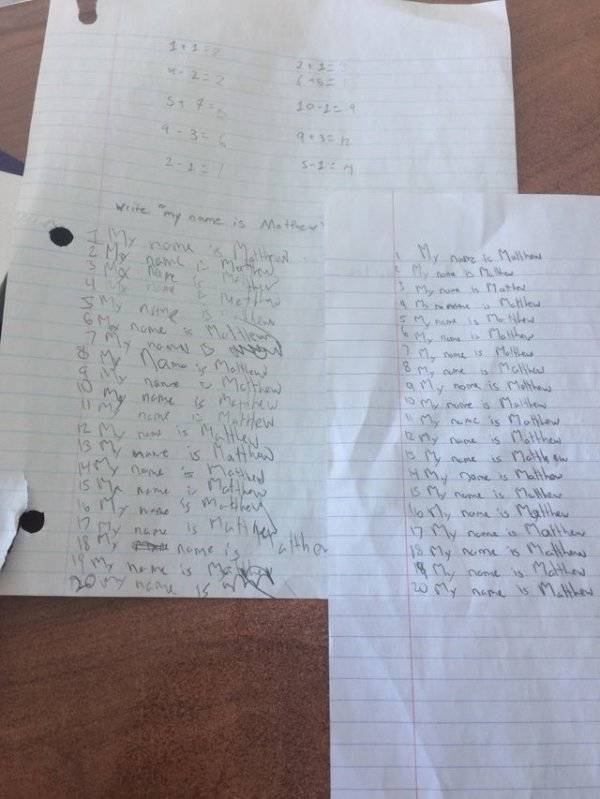 1 + 1 = 2
2 + 1 =
4 - 2 = 2
6 + 5 =
5 + 7 =
10 - 1 = 9
9 - 3 = 6
9 + 3 = 12
2 - 1 = 1
5 - 1 = 4
Write "my name is Mathew"
1 My name is Matthew
2 My name is Matthew
3 My name is Matthew
4 name is Matthew
5 My name is
6 My name is Matthew
7 My name is
8 My Name is Matthew
9 My name is Matthew
10 My name is Matthew
11 My name is Matthew
12 My name is Matthew
13 My name is Matthew
14 My name is Matthew
15 My name is Matthew
16 My name is Matthew
17 My name is Matthew
18 My name is Matthew
19 My name is
20 My name is
1 My name is Matthew
2 My name is Matthew
3 My name is Matthew
4 My name is Matthew
5 My name is Matthew
6 My name is Matthew
7 My name is Matthew
8 My name is Matthew
9 My name is Matthew
10 My name is Matthew
11 My name is Matthew
12 My name is Matthew
13 My name is Matthew
14 My name is Matthew
15 My name is Matthew
16 My name is Matthew
17 My name is Matthew
18 My name is Matthew
19 My name is Matthew
20 My name is Matthew